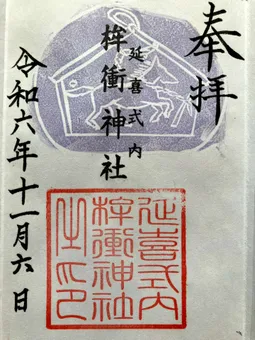 奉拝
延喜式内
桙衝神社
令和六年十一月六日
延喜式内
桙衝神社
之印